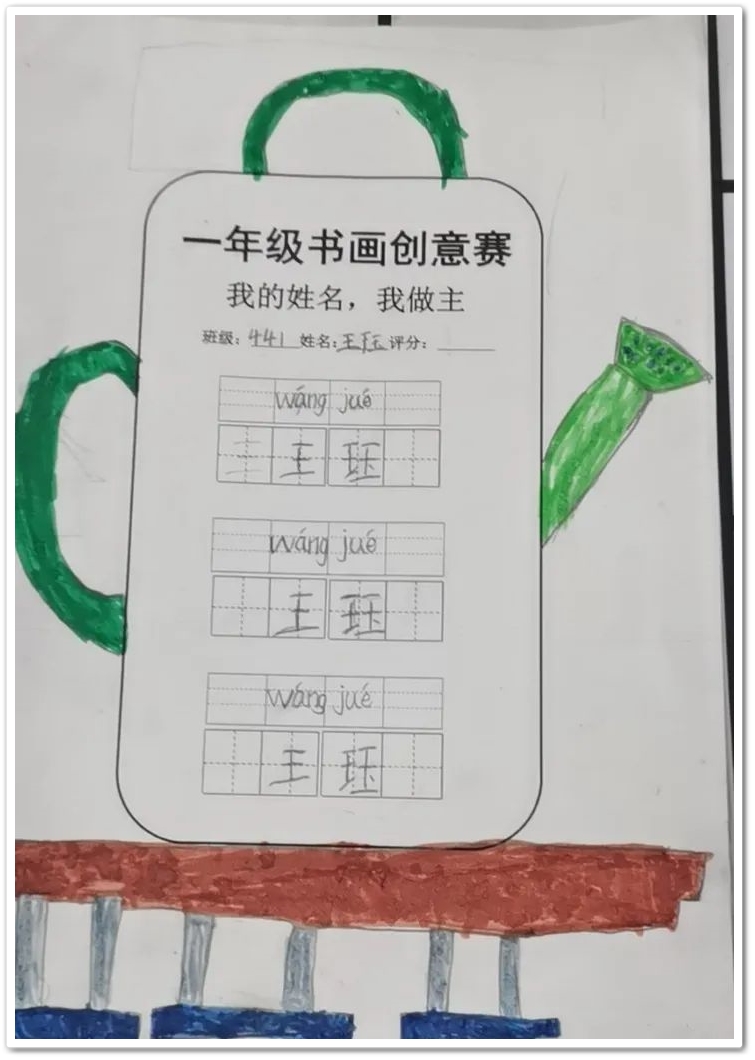 一年级书画创意赛
我的姓名，我做主
班级：441 姓名：王珏 评分：
wáng jué
王 珏
wáng jué
王 珏
wáng jué
王 珏